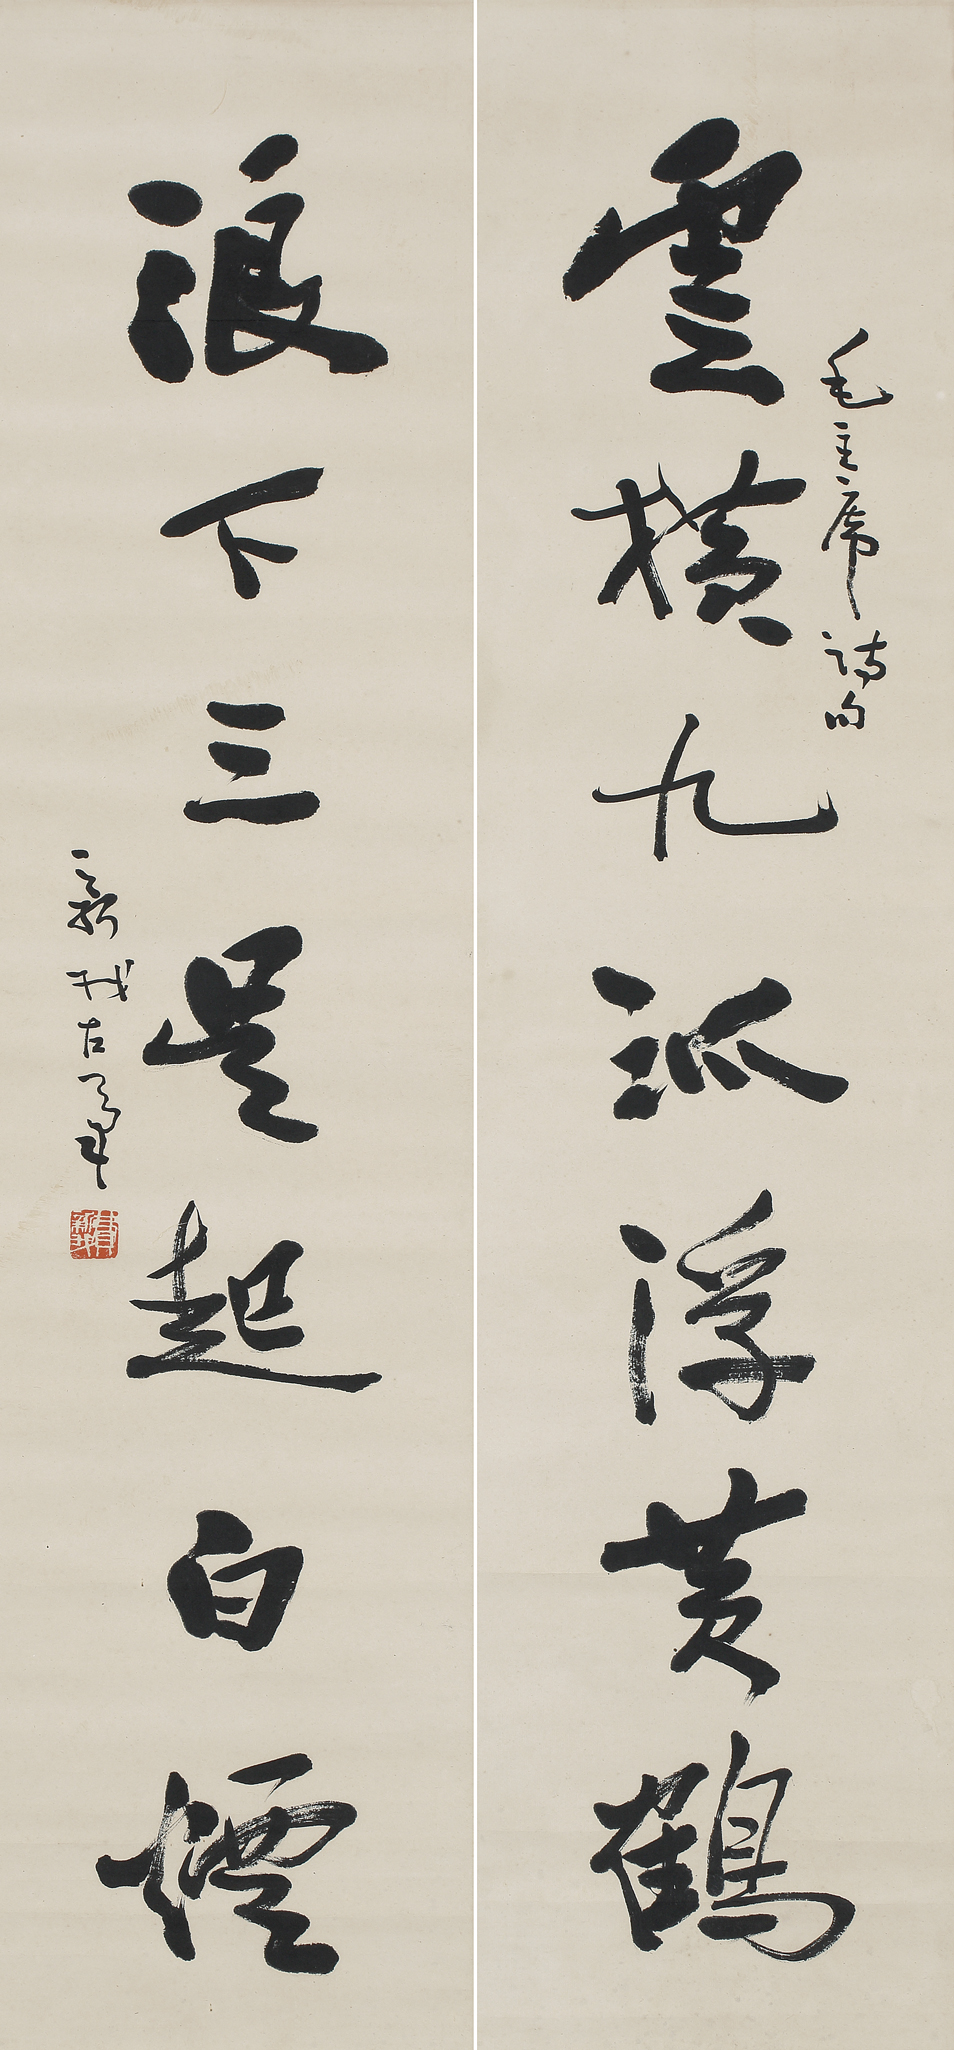 毛主席詩句
雲橫九派浮黃鶴
浪下三吳起白煙
新我左筆
費新我